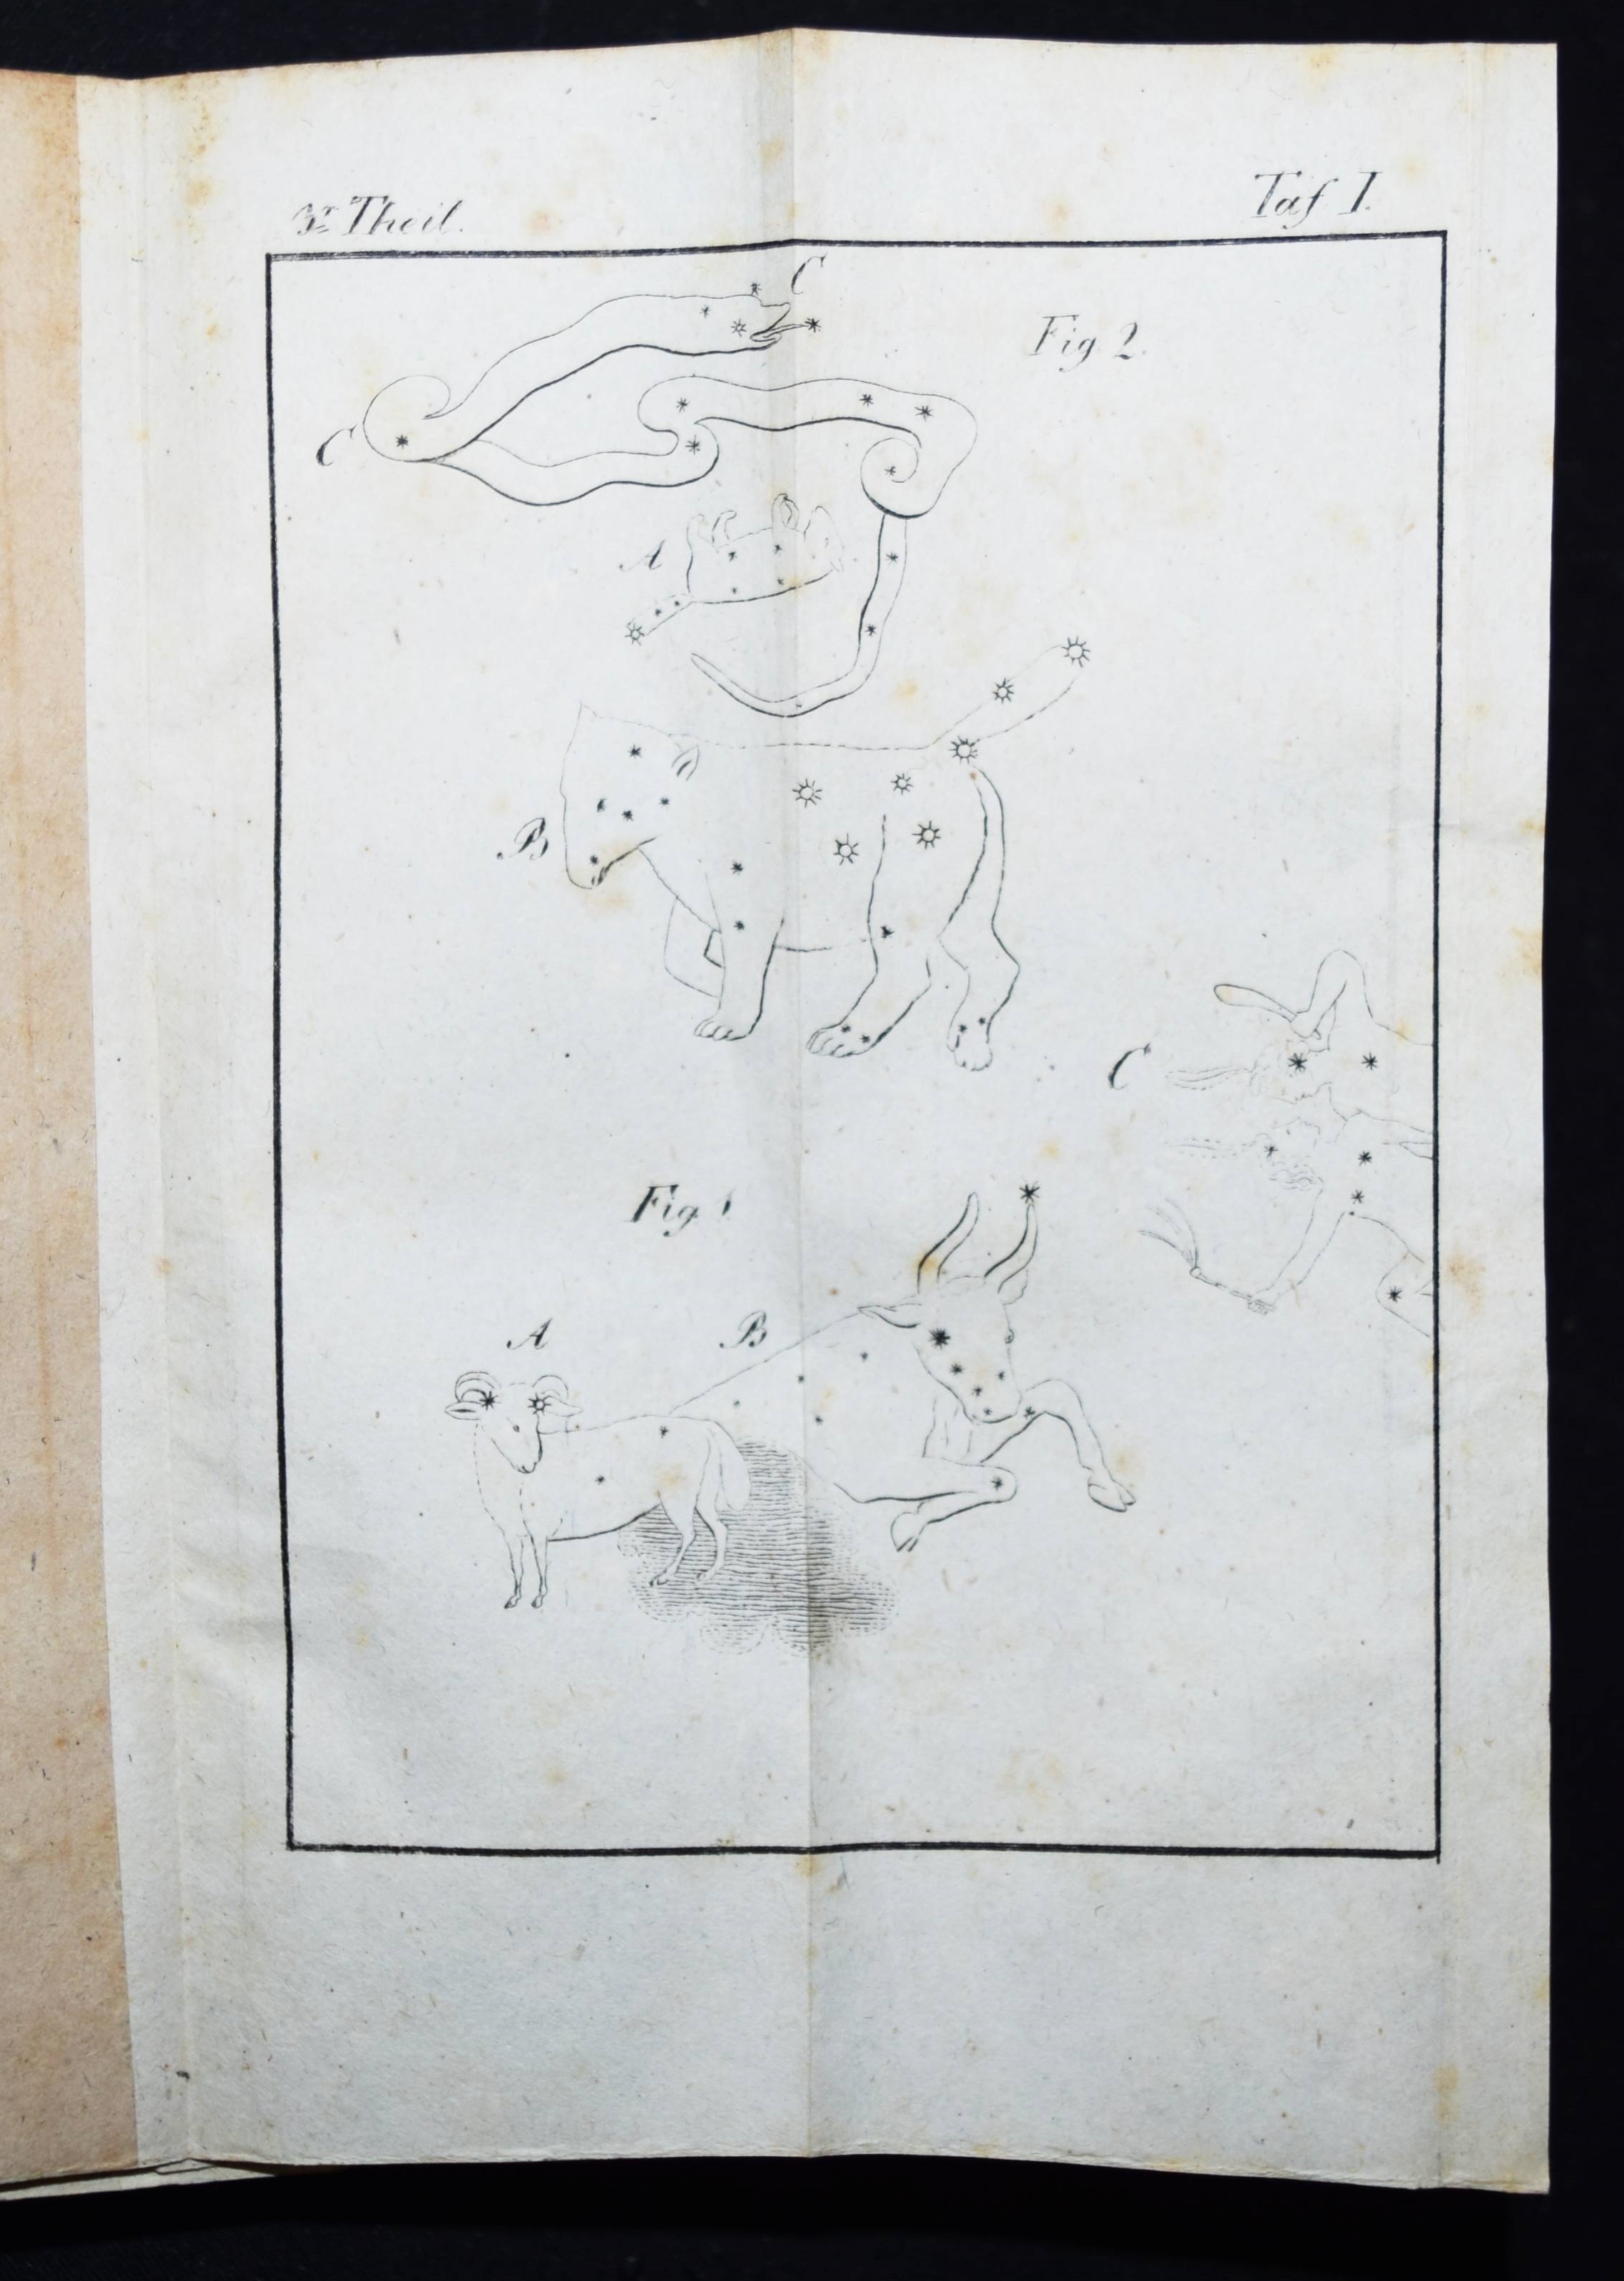 3r Theil.
Taf I.
C
Fig 2.
C
A
B
C
Fig 1
A
B